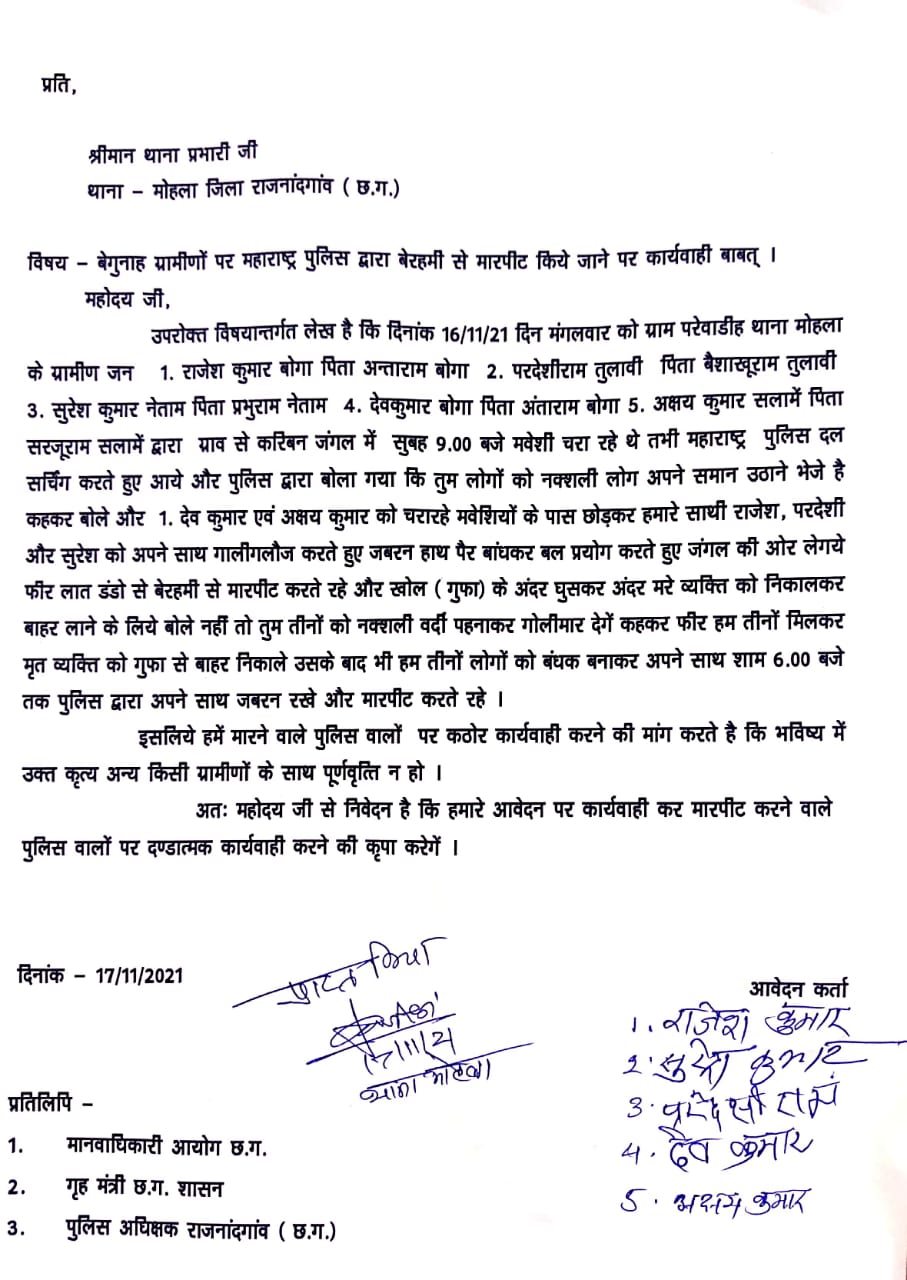 प्रति,
श्रीमान थाना प्रभारी जी
थाना – मोहला जिला राजनांदगांव ( छ.ग.)
विषय – बेगुनाह ग्रामीणों पर महाराष्ट्र पुलिस द्वारा बेरहमी से मारपीट किये जाने पर कार्यवाही बाबत् ।
महोदय जी,
उपरोक्त विषयान्तर्गत लेख है कि दिनांक 16/11/21 दिन मंगलवार को ग्राम परेवाडीह थाना मोहला
के ग्रामीण जन 1. राजेश कुमार बोगा पिता अन्ताराम बोगा 2. परदेशीराम तुलावी पिता बैशाखूराम तुलावी
3. सुरेश कुमार नेताम पिता प्रभुराम नेताम 4. देवकुमार बोगा पिता अंताराम बोगा 5. अक्षय कुमार सलामें पिता
सरजूराम सलामें द्वारा ग्राव से करिबन जंगल में सुबह 9.00 बजे मवेशी चरा रहे थे तभी महाराष्ट्र पुलिस दल
सर्चिंग करते हुए आये और पुलिस द्वारा बोला गया कि तुम लोगों को नक्शली लोग अपने समान उठाने भेजे है
कहकर बोले और 1. देव कुमार एवं अक्षय कुमार को चरारहे मवेशियों के पास छोड़कर हमारे साथी राजेश, परदेशी
और सुरेश को अपने साथ गालीगलौज करते हुए जबरन हाथ पैर बांधकर बल प्रयोग करते हुए जंगल की ओर लेगये
फीर लात डंडो से बेरहमी से मारपीट करते रहे और खोल ( गुफा) के अंदर घुसकर अंदर मरे व्यक्ति को निकालकर
बाहर लाने के लिये बोले नहीं तो तुम तीनों को नक्शली वर्दी पहनाकर गोलीमार देगें कहकर फीर हम तीनों मिलकर
मृत व्यक्ति को गुफा से बाहर निकाले उसके बाद भी हम तीनों लोगों को बंधक बनाकर अपने साथ शाम 6.00 बजे
तक पुलिस द्वारा अपने साथ जबरन रखे और मारपीट करते रहे ।
इसलिये हमें मारने वाले पुलिस वालों पर कठोर कार्यवाही करने की मांग करते है कि भविष्य में
उक्त कृत्य अन्य किसी ग्रामीणों के साथ पूर्णवृत्ति न हो ।
अतः महोदय जी से निवेदन है कि हमारे आवेदन पर कार्यवाही कर मारपीट करने वाले
पुलिस वालों पर दण्डात्मक कार्यवाही करने की कृपा करेगें ।
प्राप्त किया
दिनांक – 17/11/2021
आवेदन कर्ता
1. राजेश कुमार
17/11/21
2. सुरेश कुमार
थाना मोहला
3. परदेशी राम
प्रतिलिपि –
4. देव कुमार
1. मानवाधिकारी आयोग छ.ग.
2. गृह मंत्री छ.ग. शासन
5. अक्षय कुमार
3. पुलिस अधिक्षक राजनांदगांव ( छ.ग.)